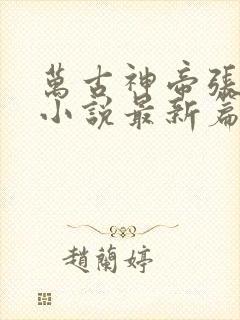 萬古神帝張
小說最新篇
趙蘭婷